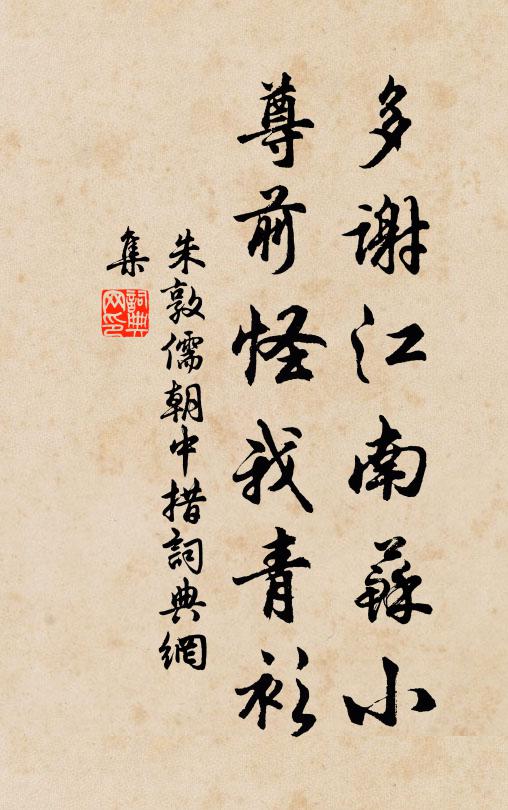 多謝江南蘇小
尊前怪我青衫
朱敦儒朝中措詞典網
集
詞典
网印